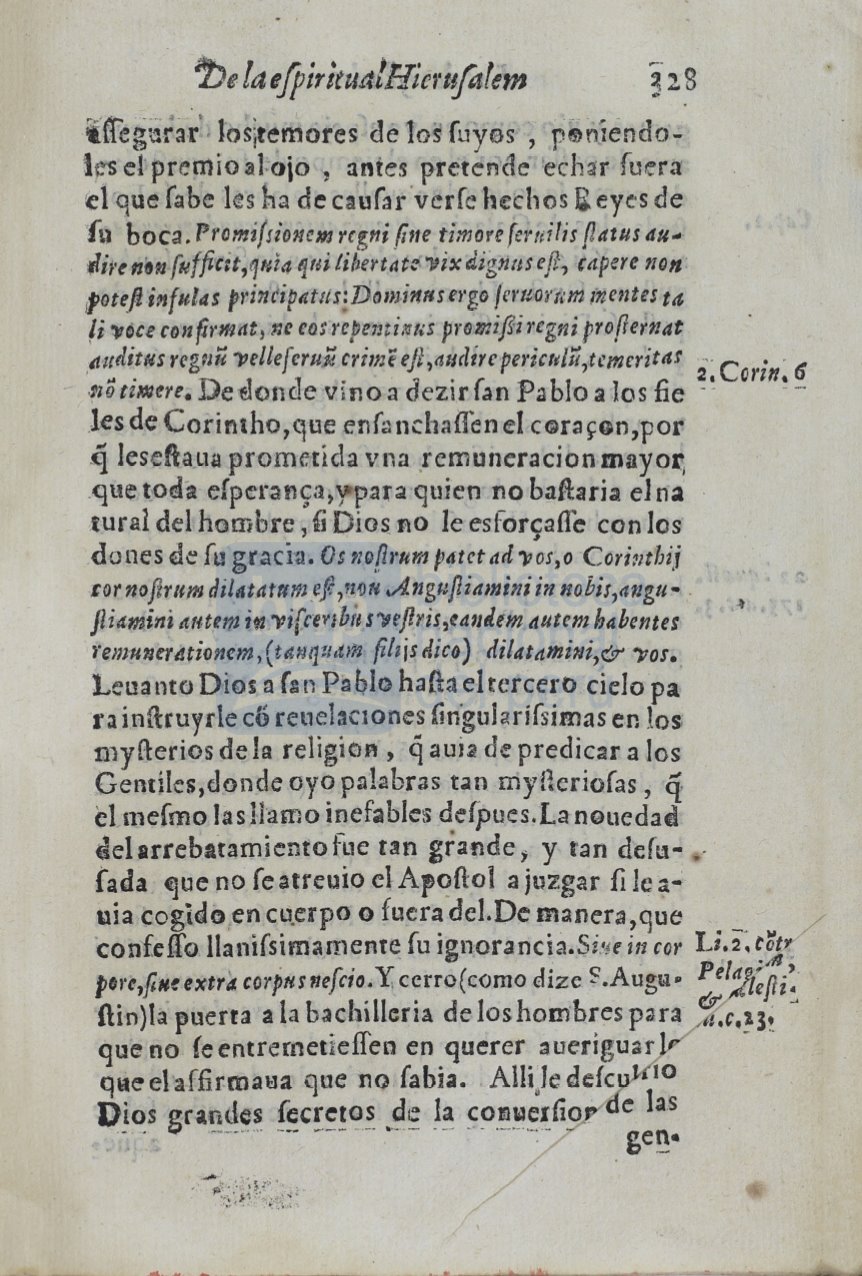 De la eſpiritual Hieruſalem 328
aſſegurar los temores de los ſuyos , poniendo-
les el premio al ojo , antes pretende echar fuera
el que ſabe les ha de cauſar verſe hechos Reyes de
ſu boca. Promiſsionem regni ſine timore ſeruilis ſtatus au-
dire non ſufficit,quia qui libertate vix dignus eſt, capere non
poteſt inſulas principatus:Dominus ergo ſeruorum mentes ta
li voce confirmat, ne eos repentinus promiſsi regni proſternat
auditus regnũ velle ſeruũ crimẽ eſt,audire periculũ,temeritas
nõ timere. De donde vino a dezir ſan Pablo a los fie
2. Corin. 6
les de Corintho,que enſanchaſſen el coraçon,por
q̃ les eſtaua prometida vna remuneracion mayor
que toda eſperança,y para quien no baſtaria el na
tural del hombre, ſi Dios no le esforçaſſe con los
dones de ſu gracia. Os noſtrum patet ad vos,o Corinthij
cor noſtrum dilatatum eſt,non Anguſtiamini in nobis,angu-
ſtiamini autem in viſceribus veſtris,eandem autem habentes
remunerationem,(tanquam filijs dico) dilatamini,& vos.
Leuanto Dios a ſan Pablo haſta el tercero cielo pa
ra inſtruyrle cõ reuelaciones ſingulariſsimas en los
myſterios de la religion , q̃ auia de predicar a los
Gentiles,donde oyo palabras tan myſterioſas , q̃
el meſmo las llamo inefables deſpues. La nouedad
del arrebatamiento fue tan grande, y tan deſu-
ſada que no ſe atreuio el Apoſtol a juzgar ſi le a-
uia cogido en cuerpo o fuera del. De manera,que
confeſſo llaniſsimamente ſu ignorancia. Siue in cor
Li. 2. cõtr
pore,ſiue extra corpus neſcio. Y cerro(como dize S. Augu-
Pelag.
ſtin)la puerta a la bachilleria de los hombres para
& leſti-
c. 23.
que no ſe entremetieſſen en querer aueriguar lo
que el affirmaua que no ſabia. Alli le deſcu
Dios grandes ſecretos de la conuerſion de las
gen-